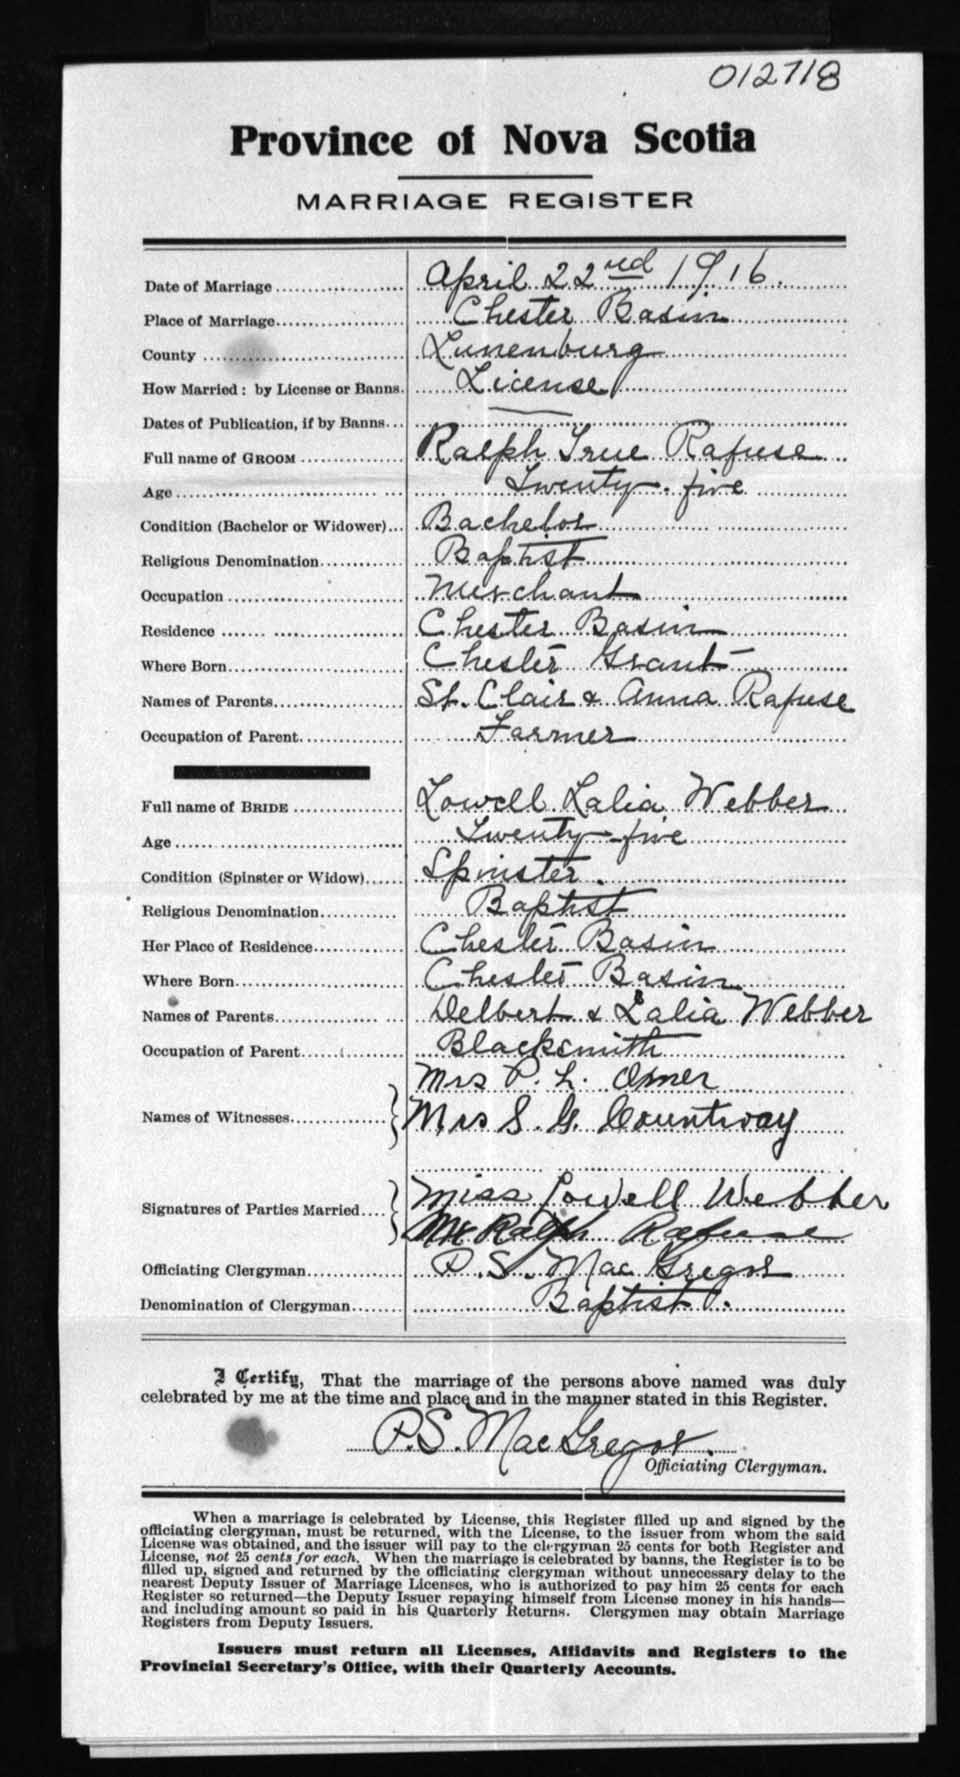 012718
Province of Nova Scotia
MARRIAGE REGISTER
Date of Marriage April 22nd 1916.
Place of Marriage Chester Basin
County Lunenburg
How Married: by License or Banns. License
Dates of Publication, if by Banns
Full name of GROOM Ralph True Rafuse
Age Twenty-five
Condition (Bachelor or Widower) Bachelor
Religious Denomination Baptist
Occupation Merchant
Residence Chester Basin
Where Born Chester Grant
Names of Parents St. Clair & Anna Rafuse
Occupation of Parent Farmer
Full name of BRIDE Lowell Lalia Webber
Age Twenty-five
Condition (Spinster or Widow) Spinster.
Religious Denomination Baptist
Her Place of Residence Chester Basin
Where Born Chester Basin
Names of Parents Delbert & Lalia Webber
Occupation of Parent Blacksmith
Mrs P. L.
Names of Witnesses Mrs S. G. Countway
Signatures of Parties Married Miss Lowell Webber
Mr Ralph Rafuse
Officiating Clergyman P. S. MacGregor
Denomination of Clergyman Baptist.
I Certify, That the marriage of the persons above named was duly
celebrated by me at the time and place and in the manner stated in this Register.
P. S. MacGregor.
Officiating Clergyman.
When a marriage is celebrated by License, this Register filled up and signed by the
officiating clergyman, must be returned, with the License, to the issuer from whom the said
License was obtained, and the issuer will pay to the clergyman 25 cents for both Register and
License, not 25 cents for each. When the marriage is celebrated by banns, the Register is to be
filled up, signed and returned by the officiating clergyman without unnecessary delay to the
nearest Deputy Issuer of Marriage Licenses, who is authorized to pay him 25 cents for each
Register so returned—the Deputy Issuer repaying himself from License money in his hands—
and including amount so paid in his Quarterly Returns. Clergymen may obtain Marriage
Registers from Deputy Issuers.
Issuers must return all Licenses, Affidavits and Registers to the
Provincial Secretary's Office, with their Quarterly Accounts.